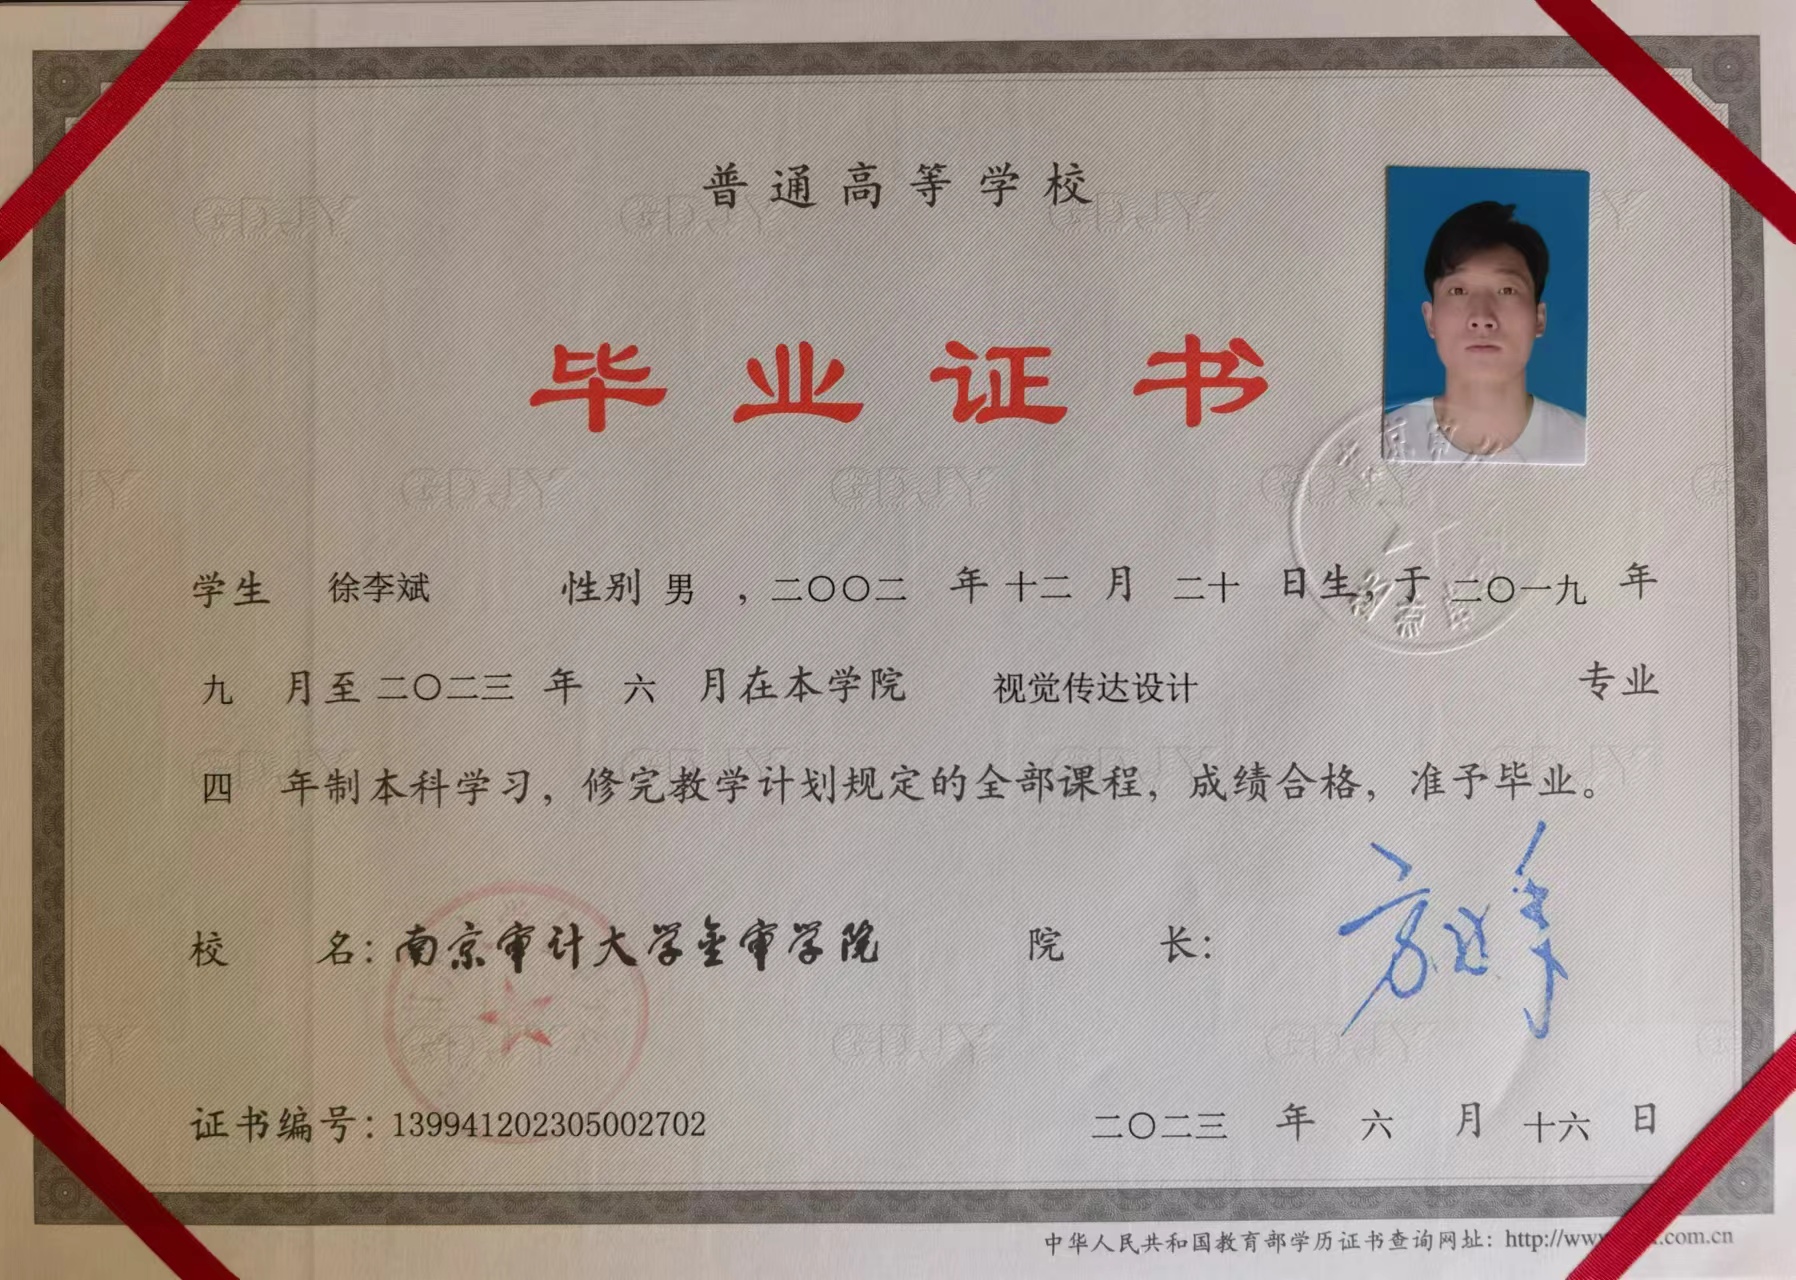 普通高等学校
毕业证书
学生 徐李斌 性别 男 ，二〇〇二 年 十二 月 二十 日生，于 二〇一九 年
九 月至 二〇二三 年 六 月在本学院 视觉传达设计 专业
四 年制本科学习，修完教学计划规定的全部课程，成绩合格，准予毕业。
校 名：南京审计大学金审学院 院 长：
证书编号：139941202305002702 二〇二三 年 六 月 十六 日
中华人民共和国教育部学历证书查询网址：http://www. .com.cn
GDJY